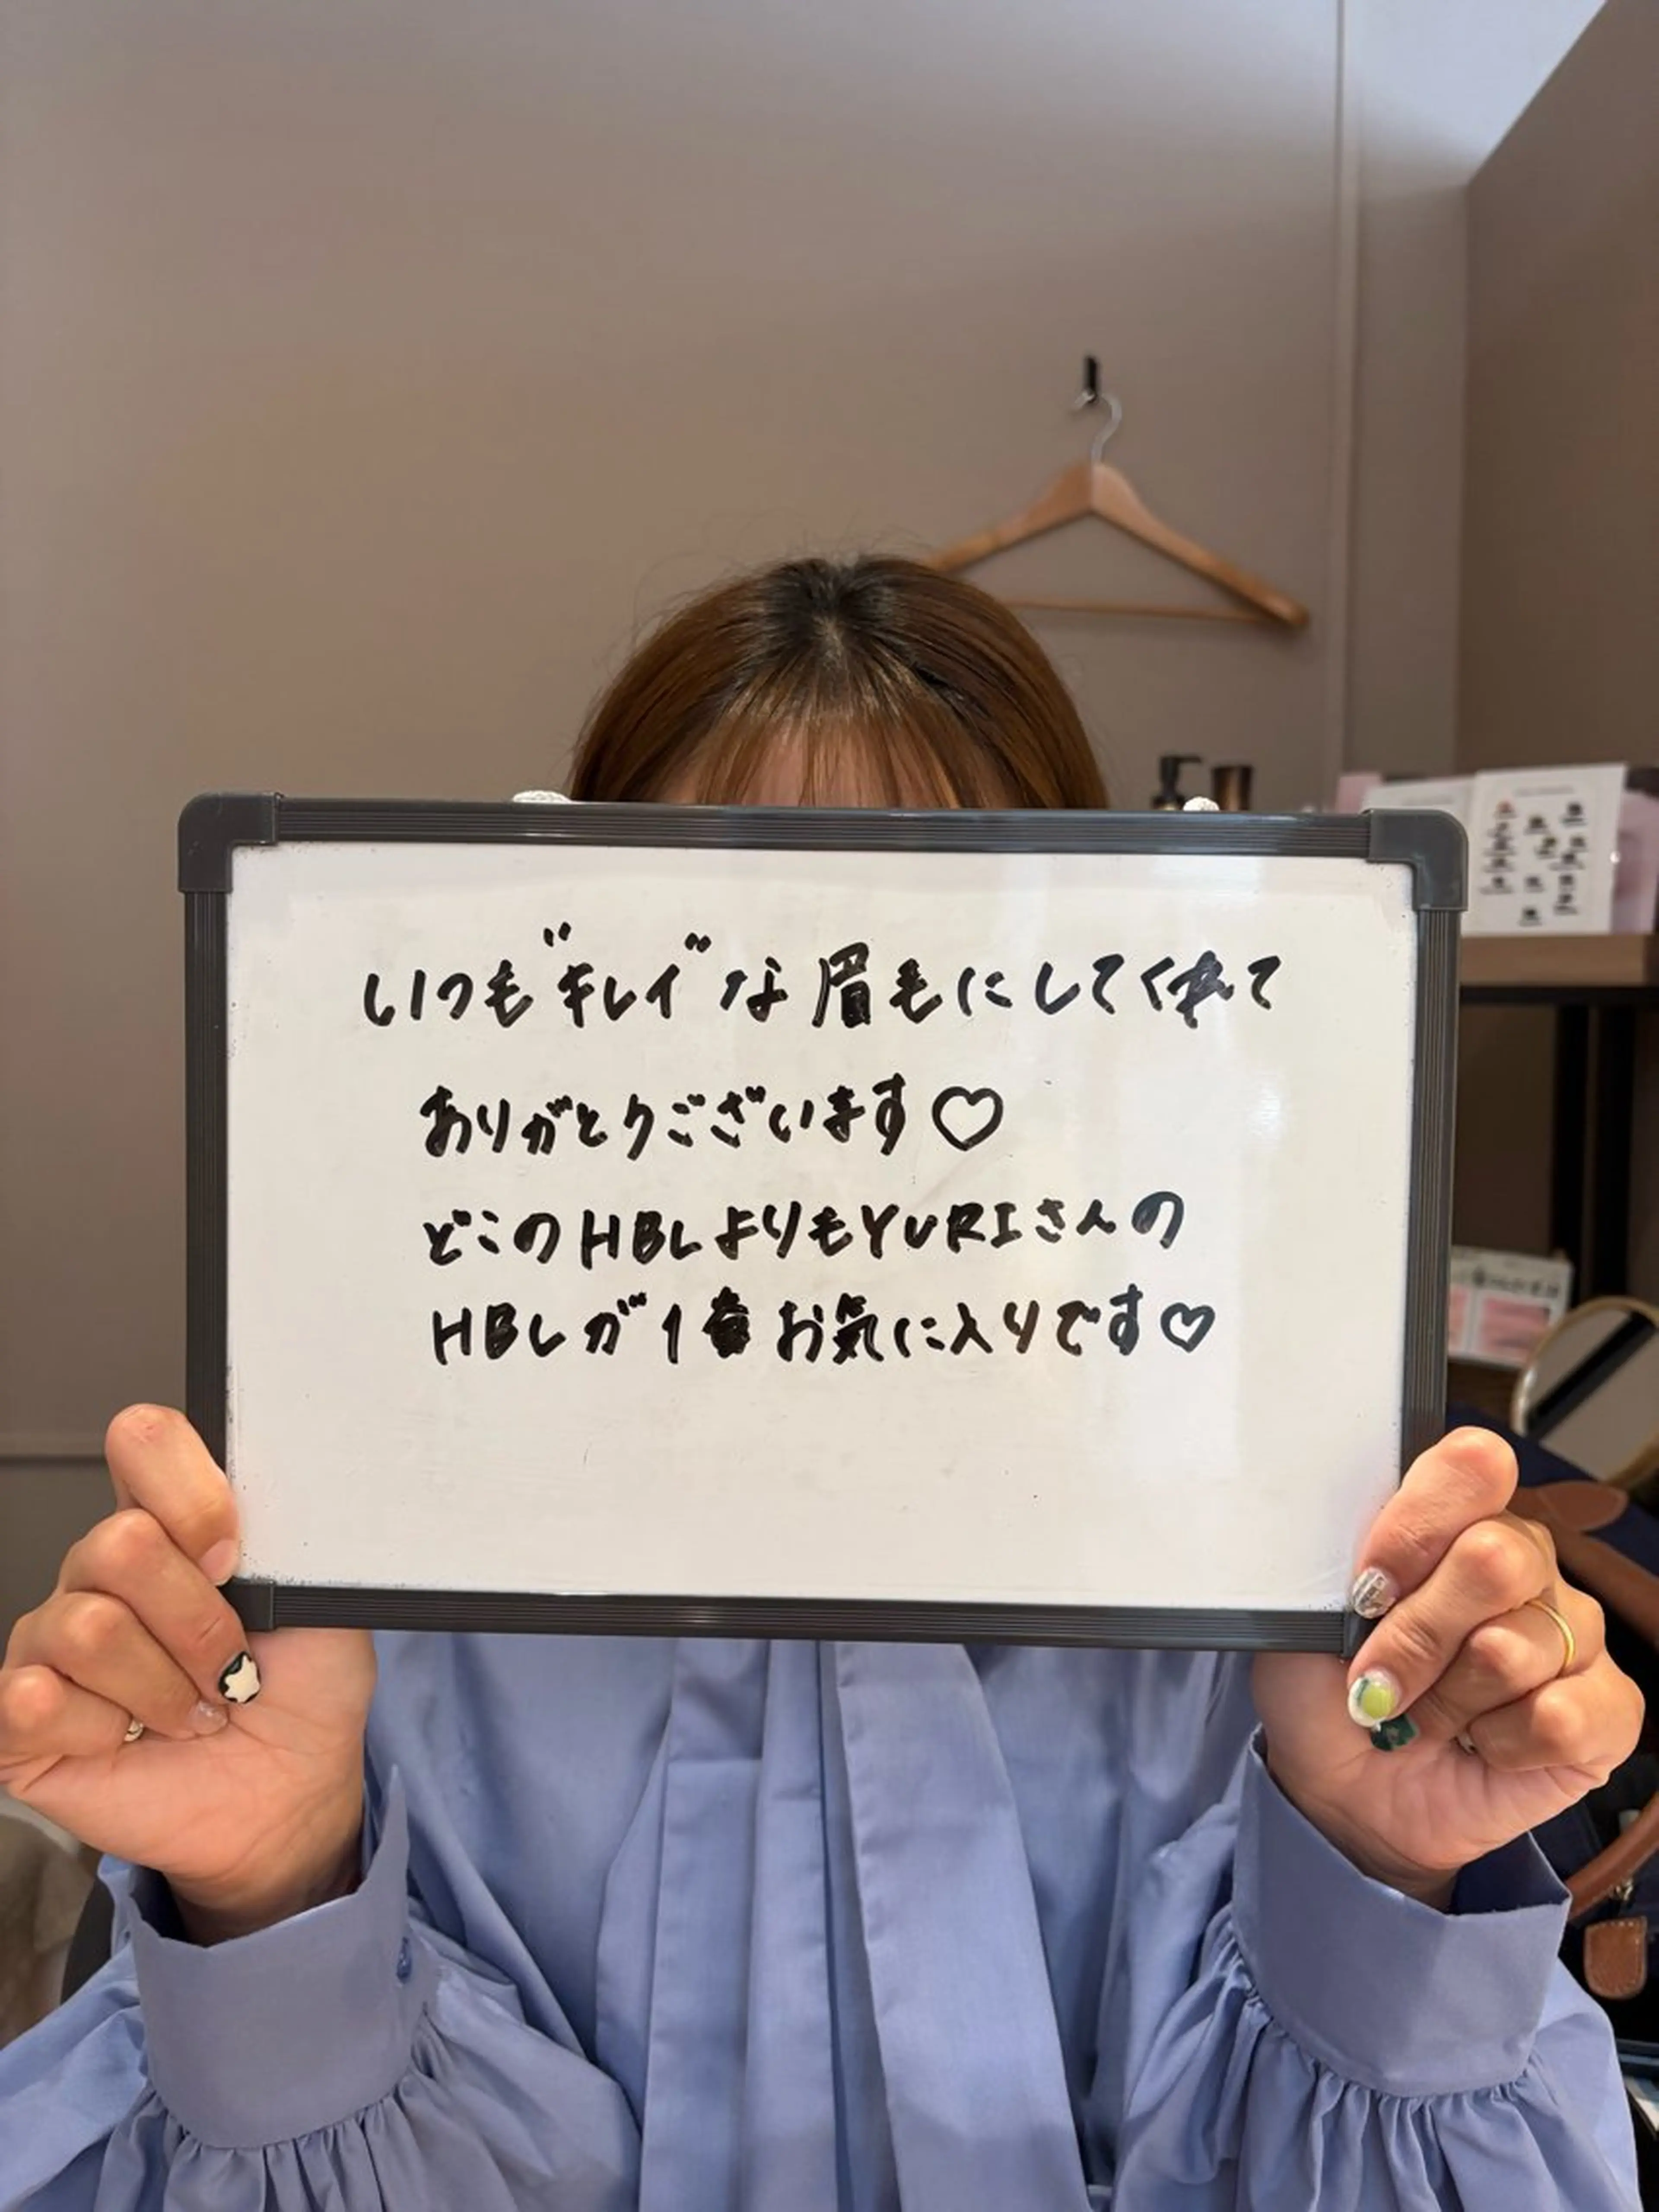 いつも"キレイ"な眉毛にしてくれて
ありがとうございます♡
どこのHBLよりもYURIさんの
HBLが1番お気に入りです♡